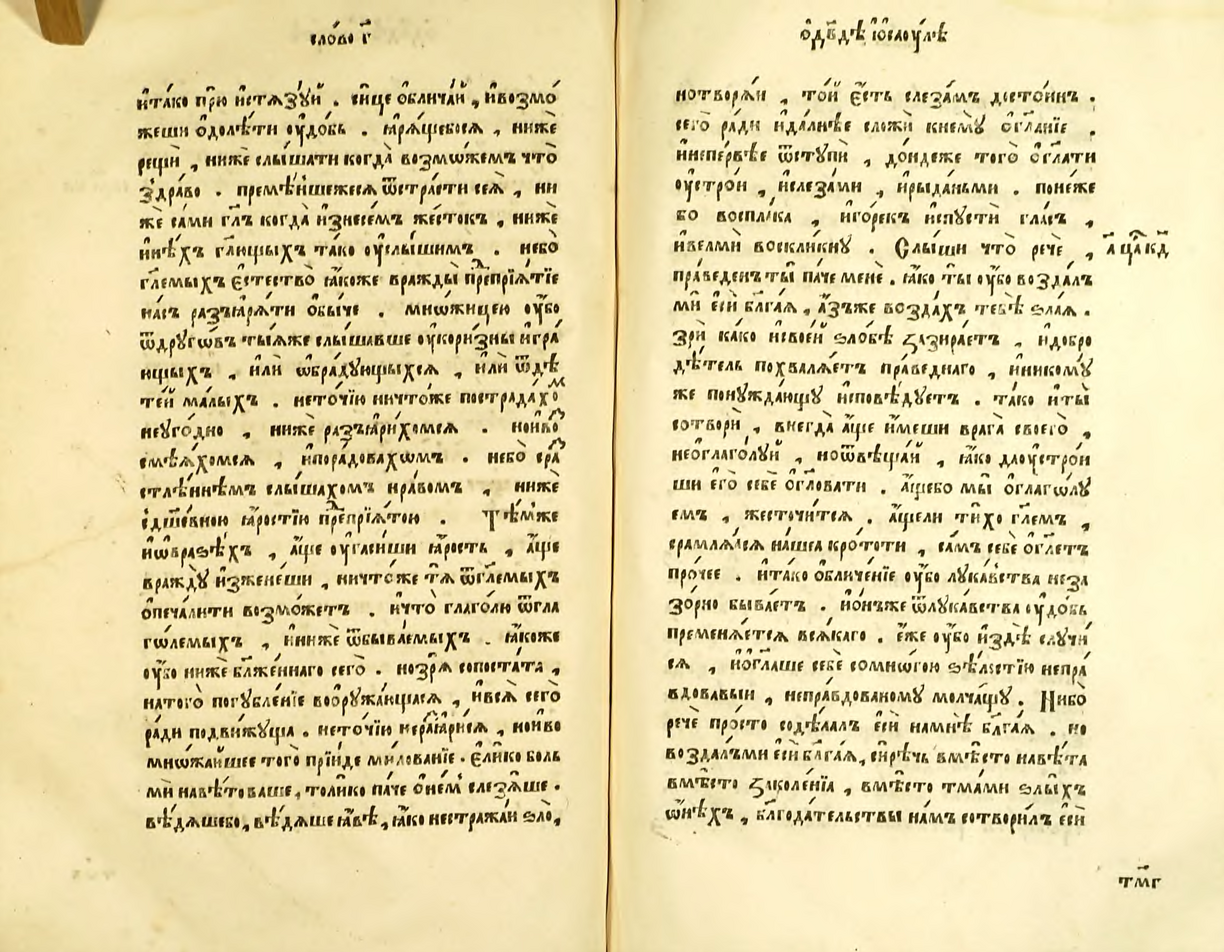 сло́во г҃
и҆тако при и҆стѧзꙋй . сице ѡ҆блича́й , и҆возмо́
жеши ѻ҆долѣ́ти ᲂу҆до́бь . ꙗ҆рѧ́щебосѧ , ниже
рещѝ , ниже слы́шати когда̀ возмо́жемъ что̀
здра́во . премѣ́ншежесѧ ѿстра́сти сеѧ̀ , ни
же са́ми гл҃ъ когда̀ и҆знесе́мъ же́стокъ , ниже
и҆нѣ́хъ гл҃ющихъ та́ко ᲂу҆слы́шимъ . небо̀
гл҃емыхъ є҆стество̀ ꙗ҆́коже вражды̀ препрїѧ́тїе
на́съ разъꙗ҆рѧ́ти ѻ҆бы́че . мно́жицею ᲂу҆́бо
ѿдрꙋ́говъ ты́ѧже слы́шавше ᲂу҆кори́зны и҆гра́
ющыхъ , и҆лѝ ѡ҆бра́дꙋющыхсѧ , и҆лѝ ѿдѣ
те́й ма́лыхъ . нето́чїю ничто́же пострада́хо м
неꙋго́дно , ниже разъꙗ҆ри́хомсѧ . но и҆во
смѣѧ́хомсѧ , и҆пора́довахомъ . небо̀ сра
стлѣ́ннѣмъ слы́шахомъ нра́вомъ , ниже
сдш҃е́вною ꙗ҆́ростїю препрїѧ́тою . Тѣ́мже
и҆ѡ҆вразѣ́хъ , а҆́ще ᲂу҆гаси́ши ꙗ҆́рость , а҆́ще
враждꙋ̀ и҆зжене́ши , ничто́же тѧ̀ ѿгл҃емыхъ
ѻ҆печа́лити возмо́жетъ . и҆что̀ глаго́лю ѿгла
го́лемыхъ , и҆ниже ѿбыва́емыхъ . ꙗ҆́коже
ᲂу҆́бо ниже бл҃же́ннаго сего̀ . нозрѧ̀ сопоста́та ,
натого̀ погꙋбле́нїе воорꙋжа́ющасѧ , и҆всѧ̀ сего̀
ра́ди подви́жꙋща . нето́чїю нераꙗ҆ри́сѧ , но и҆во
мно́жайшее того̀ прїи́де ми́лованїе . є҆ли́ко боль
мѝ навѣ́товаше , толи́ко па́че ѻ҆не́мъ слезѧ́ше .
вѣ́дѧшебо , вѣ́дѧше ꙗ҆́вѣ , ꙗ҆́ко нестража́й ѕло̀ ,
ѻ҆дв҃дѣ и҆ саꙋ́лѣ
нотворѧ́й , то́й є҆́сть слеза́мъ досто́инъ .
сего̀ ра́ди и҆дале́че сложѝ кнемꙋ̀ ѻ҆гл҃а́нїе .
и҆непе́рвѣе ѿстꙋпѝ , до́ндеже того̀ ѻ҆гл҃ати
ᲂу҆стро́и , и҆слеза́ми , и҆рыда́ньми . поне́же
бо воспла́ка , и҆го́рекъ и҆спꙋстѝ гла́съ ,
и҆ве́лми воскли́кнꙋ . Слы́ши что̀ речѐ , а҃ ца҃ кд҃
пра́веденъ ты̀ па́че менѐ . ꙗ҆́ко ты̀ ᲂу҆́бо возда́лъ
мѝ є҆сѝ бл҃га́ѧ , а҆́зъже возда́хъ тебѣ̀ ѕла́ѧ .
зрѝ ка́ко и҆свое́й ѕло́бѣ зазира́етъ , и҆добро
дѣ́тель похвалѧ́етъ пра́веднаго , и҆никомꙋ̀
же понꙋжда́ющꙋ и҆сповѣ́дꙋетъ . та́ко и҆ты̀
сотворѝ , внегда̀ а҆́ще и҆́меши врага̀ своего̀ ,
неѻ҆глаго́лꙋй , ноѿвѣща́й , ꙗ҆́ко даᲂу҆стро́и
ши є҆го̀ себѐ ѻ҆гл҃овати . а҆́щебо мы̀ ѻ҆глаго́лꙋ
емъ , жесточи́тсѧ . а҆́щели ти́хо гл҃емъ ,
срамлѧ́ѧсѧ на́шеа кро́тоти , са́мъ себѐ ѻ҆гл҃етъ
про́чее . и҆та́ко ѻ҆бличе́нїе ᲂу҆́бо лꙋка́вства неза
зо́рно быва́етъ . и҆ѻ҆нъже ѿлꙋка́вства ᲂу҆до́бь
пременѧ́етсѧ всѧ́каго . є҆́же ᲂу҆́бо и҆здѣ̀ слꙋчи́
сѧ , и҆ѻ҆гл҃аше себѐ сомно́гою ѕѣ́лостїю непра́
вдовавыи , непра́вдованомꙋ молча́щꙋ . Нибо̀
речѐ про́сто содѣ́лалъ є҆сѝ намнѣ̀ бл҃га́ѧ . но
возда́лъми є҆сѝ бл҃га́ѧ , си́рѣчь вмѣ́сто навѣ́та
вмѣ́сто заколе́нїа , вмѣ́сто тма́ми ѕлы́хъ
ѻ҆нѣ́хъ , бл҃года́тельствы на́мъ сотвори́лъ є҆сѝ
тм҃г